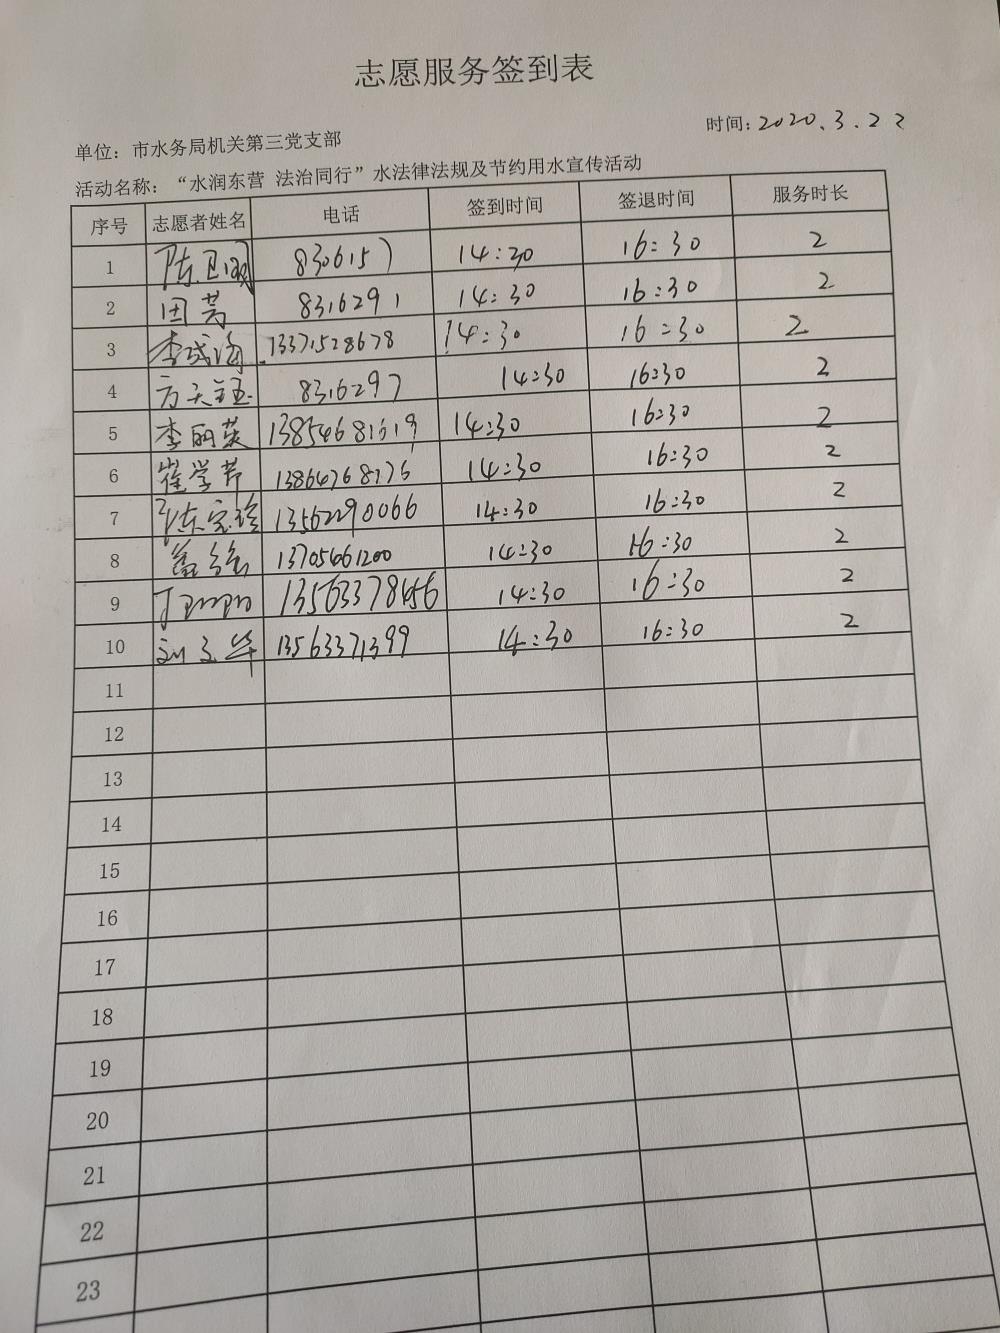 志愿服务签到表
时间：2020.3.22
单位：市水务局机关第三党支部
活动名称：“水润东营 法治同行”水法律法规及节约用水宣传活动
序号 志愿者姓名 电话 签到时间 签退时间 服务时长
1 陈卫 8306157 14:30 16:30 2
2 田芳 8316291 14:30 16:30 2
3 李成海 13371528678 14:30 16:30 2
4 方天钰 8316297 14:30 16:30 2
5 李丽英 13854681619 14:30 16:30 2
6 崔学芹 14:30 16:30 2
7 陈宝珍 13562290066 14:30 16:30 2
8 13705661200 14:30 16:30 2
9 14:30 16:30 2
10 刘文华 13563371399 14:30 16:30 2
11
12
13
14
15
16
17
18
19
20
21
22
23